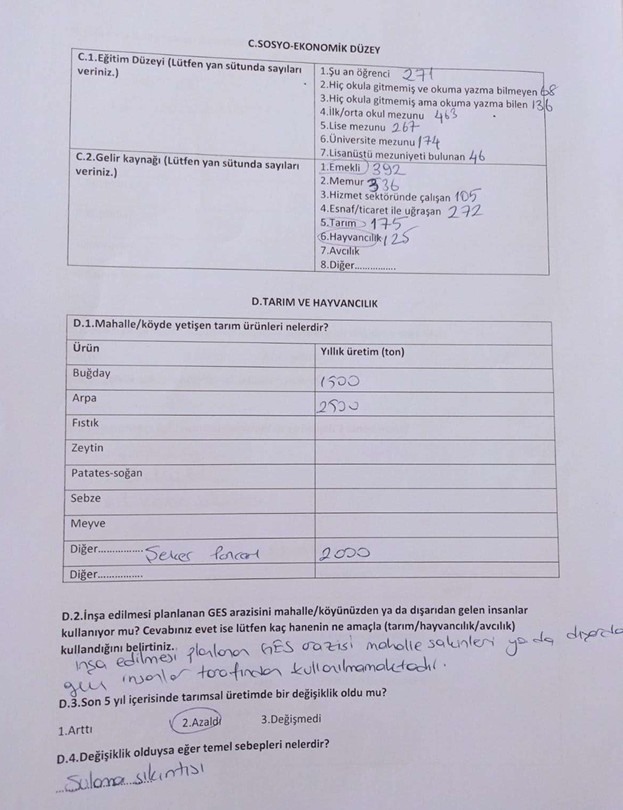 C.SOSYO-EKONOMİK DÜZEY
C.1.Eğitim Düzeyi (Lütfen yan sütunda sayıları
veriniz.)
1.Şu an öğrenci 271
2.Hiç okula gitmemiş ve okuma yazma bilmeyen 68
3.Hiç okula gitmemiş ama okuma yazma bilen 136
4.İlk/orta okul mezunu 463
5.Lise mezunu 267
6.Üniversite mezunu 174
7.Lisanüstü mezuniyeti bulunan 46
C.2.Gelir kaynağı (Lütfen yan sütunda sayıları
veriniz.)
1.Emekli 392
2.Memur 336
3.Hizmet sektöründe çalışan 105
4.Esnaf/ticaret ile uğraşan 272
5.Tarım 175
6.Hayvancılık 125
7.Avcılık
8.Diğer................
D.TARIM VE HAYVANCILIK
D.1.Mahalle/köyde yetişen tarım ürünleri nelerdir?
Ürün Yıllık üretim (ton)
Buğday 1500
Arpa 2500
Fıstık
Zeytin
Patates-soğan
Sebze
Meyve
Diğer................ Şeker Pancarı 2000
Diğer................
D.2.İnşa edilmesi planlanan GES arazisini mahalle/köyünüzden ya da dışarıdan gelen insanlar
kullanıyor mu? Cevabınız evet ise lütfen kaç hanenin ne amaçla (tarım/hayvancılık/avcılık)
kullandığını belirtiniz.
inşa edilmesi planlanan GES arazisi mahalle sakinleri ya da
insanlar tarafından kullanılmamaktadır.
D.3.Son 5 yıl içerisinde tarımsal üretimde bir değişiklik oldu mu?
1.Arttı 2.Azaldı 3.Değişmedi
D.4.Değişiklik olduysa eğer temel sebepleri nelerdir?
Sulama sıkıntısı